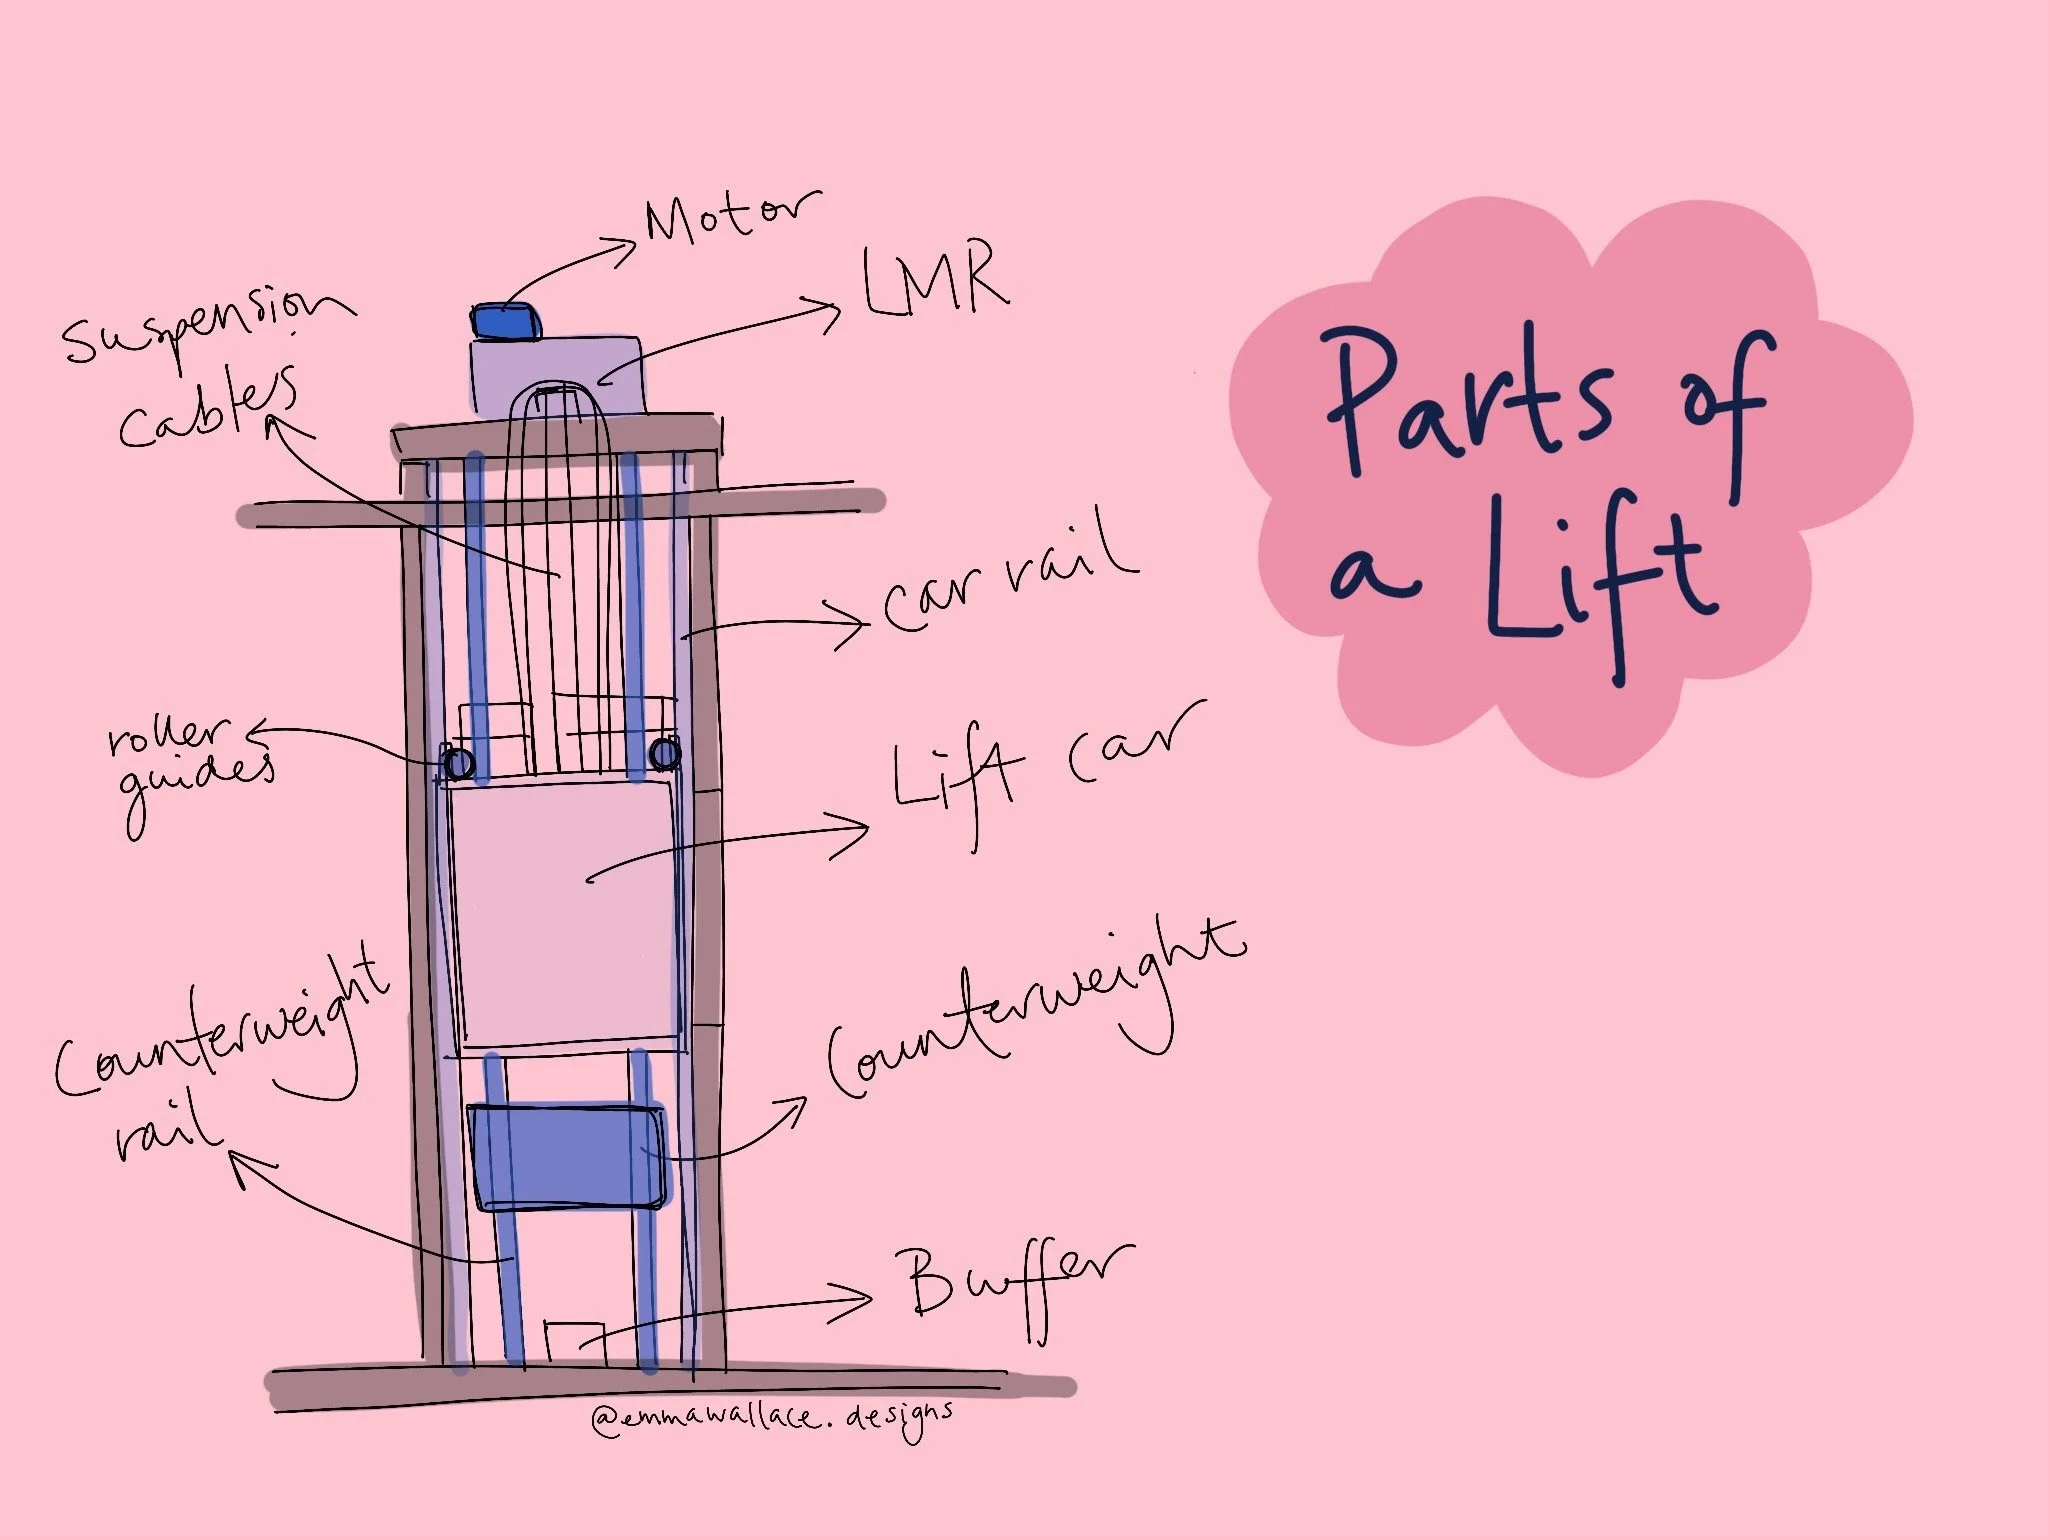 Parts of
a Lift
Motor
LMR
Suspension
cables
car rail
roller
guides
Lift car
Counterweight
rail
Counterweight
Buffer
@emmawallace.designs